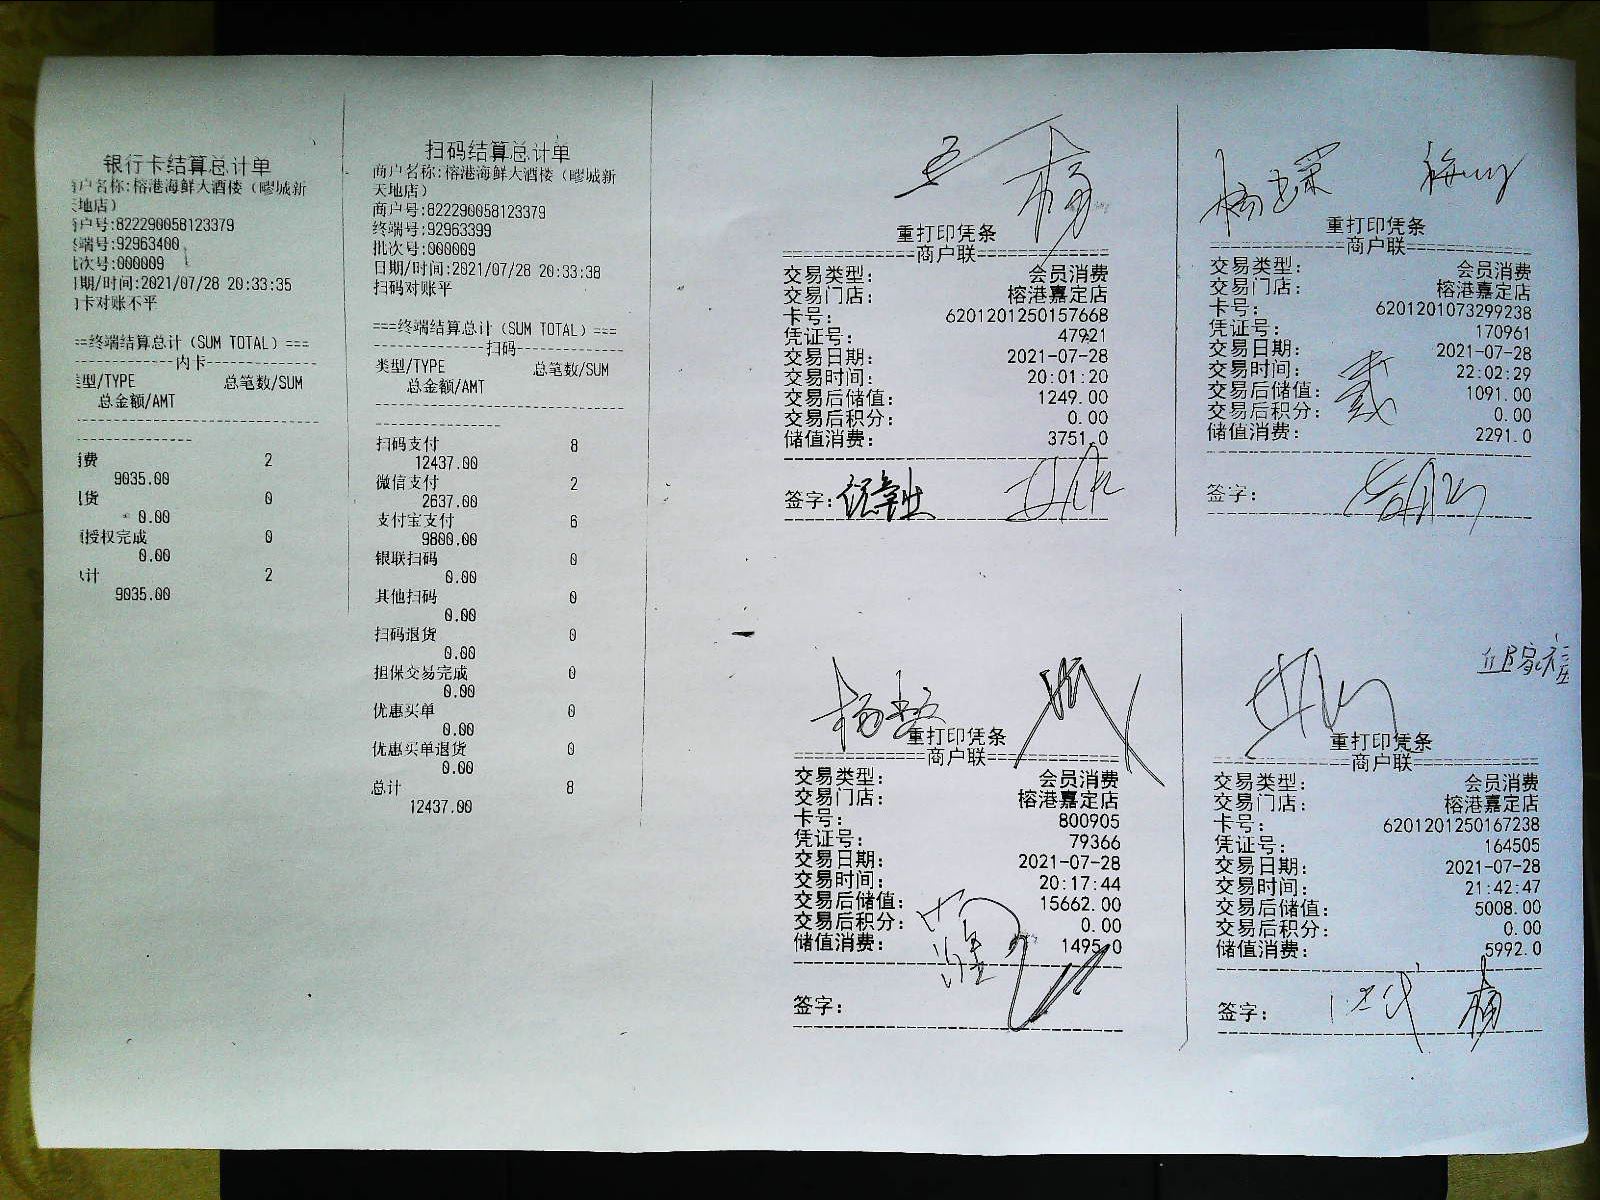 银行卡结算总计单
户名称:榕港海鲜大酒楼（疁城新
地店）
户号:822290058123379
端号:92963400
次号:000009
期/时间:2021/07/28 20:33:35
卡对账不平
==终端结算总计（SUM TOTAL）===
----------内卡----------
型/TYPE 总笔数/SUM
总金额/AMT
费 2
9035.00
货 0
0.00
授权完成 0
0.00
计 2
9035.00
扫码结算总计单
商户名称:榕港海鲜大酒楼（疁城新
天地店）
商户号:822290058123379
终端号:92963399
批次号:000009
日期/时间:2021/07/28 20:33:38
扫码对账平
===终端结算总计（SUM TOTAL）===
----------扫码----------
类型/TYPE 总笔数/SUM
总金额/AMT
扫码支付 8
12437.00
微信支付 2
2637.00
支付宝支付 6
9800.00
银联扫码 0
0.00
其他扫码 0
0.00
扫码退货 0
0.00
担保交易完成 0
0.00
优惠买单 0
0.00
优惠买单退货 0
0.00
总计 8
12437.00
重打印凭条
==========商户联==========
交易类型: 会员消费
交易门店: 榕港嘉定店
卡号: 6201201250157668
凭证号: 47921
交易日期: 2021-07-28
交易时间: 20:01:20
交易后储值: 1249.00
交易后积分: 0.00
储值消费: 3751.0
签字:
重打印凭条
==========商户联==========
交易类型: 会员消费
交易门店: 榕港嘉定店
卡号: 6201201073299238
凭证号: 170961
交易日期: 2021-07-28
交易时间: 22:02:29
交易后储值: 1091.00
交易后积分: 0.00
储值消费: 2291.0
签字:
重打印凭条
==========商户联==========
交易类型: 会员消费
交易门店: 榕港嘉定店
卡号: 800905
凭证号: 79366
交易日期: 2021-07-28
交易时间: 20:17:44
交易后储值: 15662.00
交易后积分: 0.00
储值消费: 1495.0
签字:
重打印凭条
==========商户联==========
交易类型: 会员消费
交易门店: 榕港嘉定店
卡号: 6201201250167238
凭证号: 164505
交易日期: 2021-07-28
交易时间: 21:42:47
交易后储值: 5008.00
交易后积分: 0.00
储值消费: 5992.0
签字: